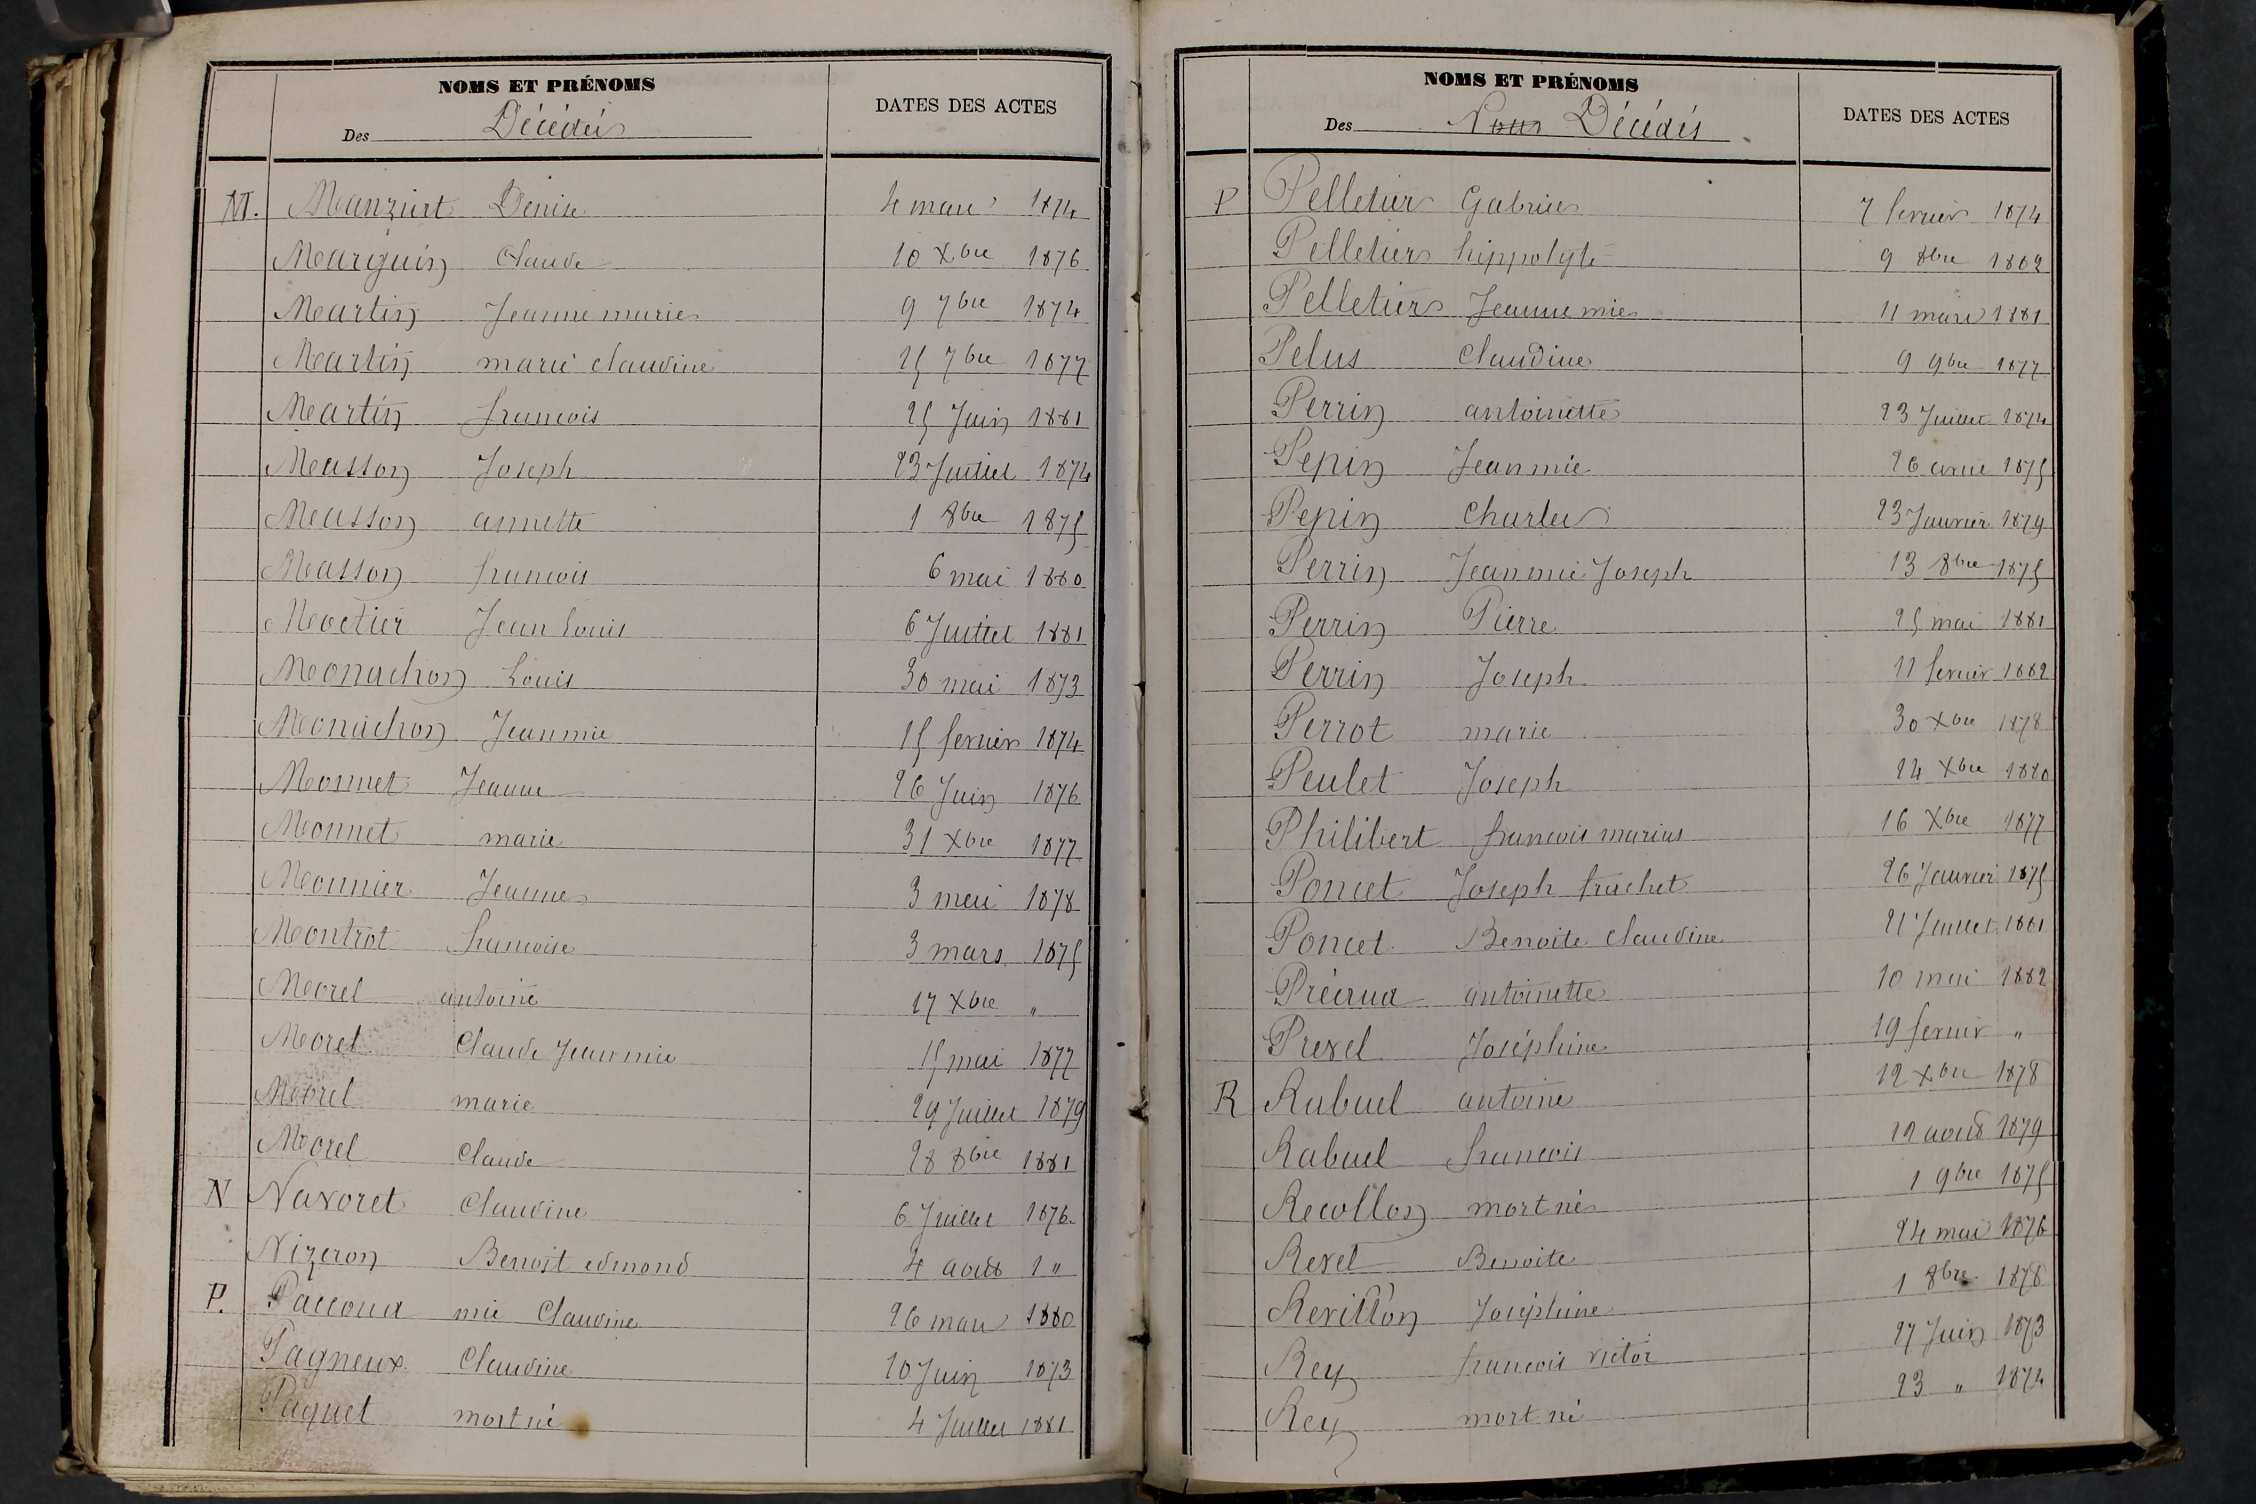 NOMS ET PRÉNOMS
Des Décédés
DATES DES ACTES
M. Manziat Denise 4 mars 1874
Marguin Claude 10 Xbre 1876
Martin Jeanne marie 9 7bre 1874
Martin marie claudine 15 7bre 1877
Martin francois 25 Juin 1881
Masson Joseph 23 Juillet 1874
Masson annette 1 8bre 1875
Masson francois 6 mai 1880
Jean Louis 6 Juillet 1881
Monachon Louis 30 mai 1873
Monachon Jean mie 15 fevrier 1874
Monnet Jeanne 26 Juin 1876
Monnet marie 31 Xbre 1877
Monnier Jeanne 3 mai 1878
Montrot francoise 3 mars 1875
Morel antoine 17 Xbre "
Morel Claude Jean mie 15 mai 1877
Morel marie 29 Juillet 1879
Morel Claude 28 8bre 1881
N Navoret Claudine 6 Juillet 1876
Nizeron Benoit edmond 4 août 1 "
P. Paccoud mie Claudine 26 mars 1880
Pagneux Claudine 10 Juin 1873
Paquet mort né 4 Juillet 1881
NOMS ET PRÉNOMS
Des Nom Décédés
DATES DES ACTES
P Pelletier Gabriel 7 fevrier 1874
Pelletier hippolyte 9 8bre 1882
Pelletier Jeanne mie 11 mars 1881
Pelus Claudine 9 9bre 1877
Perrin antoinette 23 Juillet 1874
Pepin Jean mie 26 avril 1875
Pepin Charles 23 Janvier 1879
Perrin Jean mie Joseph 13 8bre 1875
Perrin Pierre 25 mai 1881
Perrin Joseph 11 fevrier 1882
Perrot marie 30 Xbre 1878
Peulet Joseph 24 Xbre 1880
Philibert francois marius 16 Xbre 1877
Poncet Joseph frachet 26 Janvier 1875
Poncet Benoite Claudine 21 Juillet 1881
antoinette 10 mai 1882
Prevel Joséphine 19 fevrier "
R Rabuel antoine 12 Xbre 1878
Rabuel francois 12 août 1879
Recollon mort né 1 9bre 1875
Revel Benoite 24 mai 1876
Revillon Joséphine 1 8bre 1878
Rey francois victor 27 Juin 1873
Rey mort né 23 " 1874